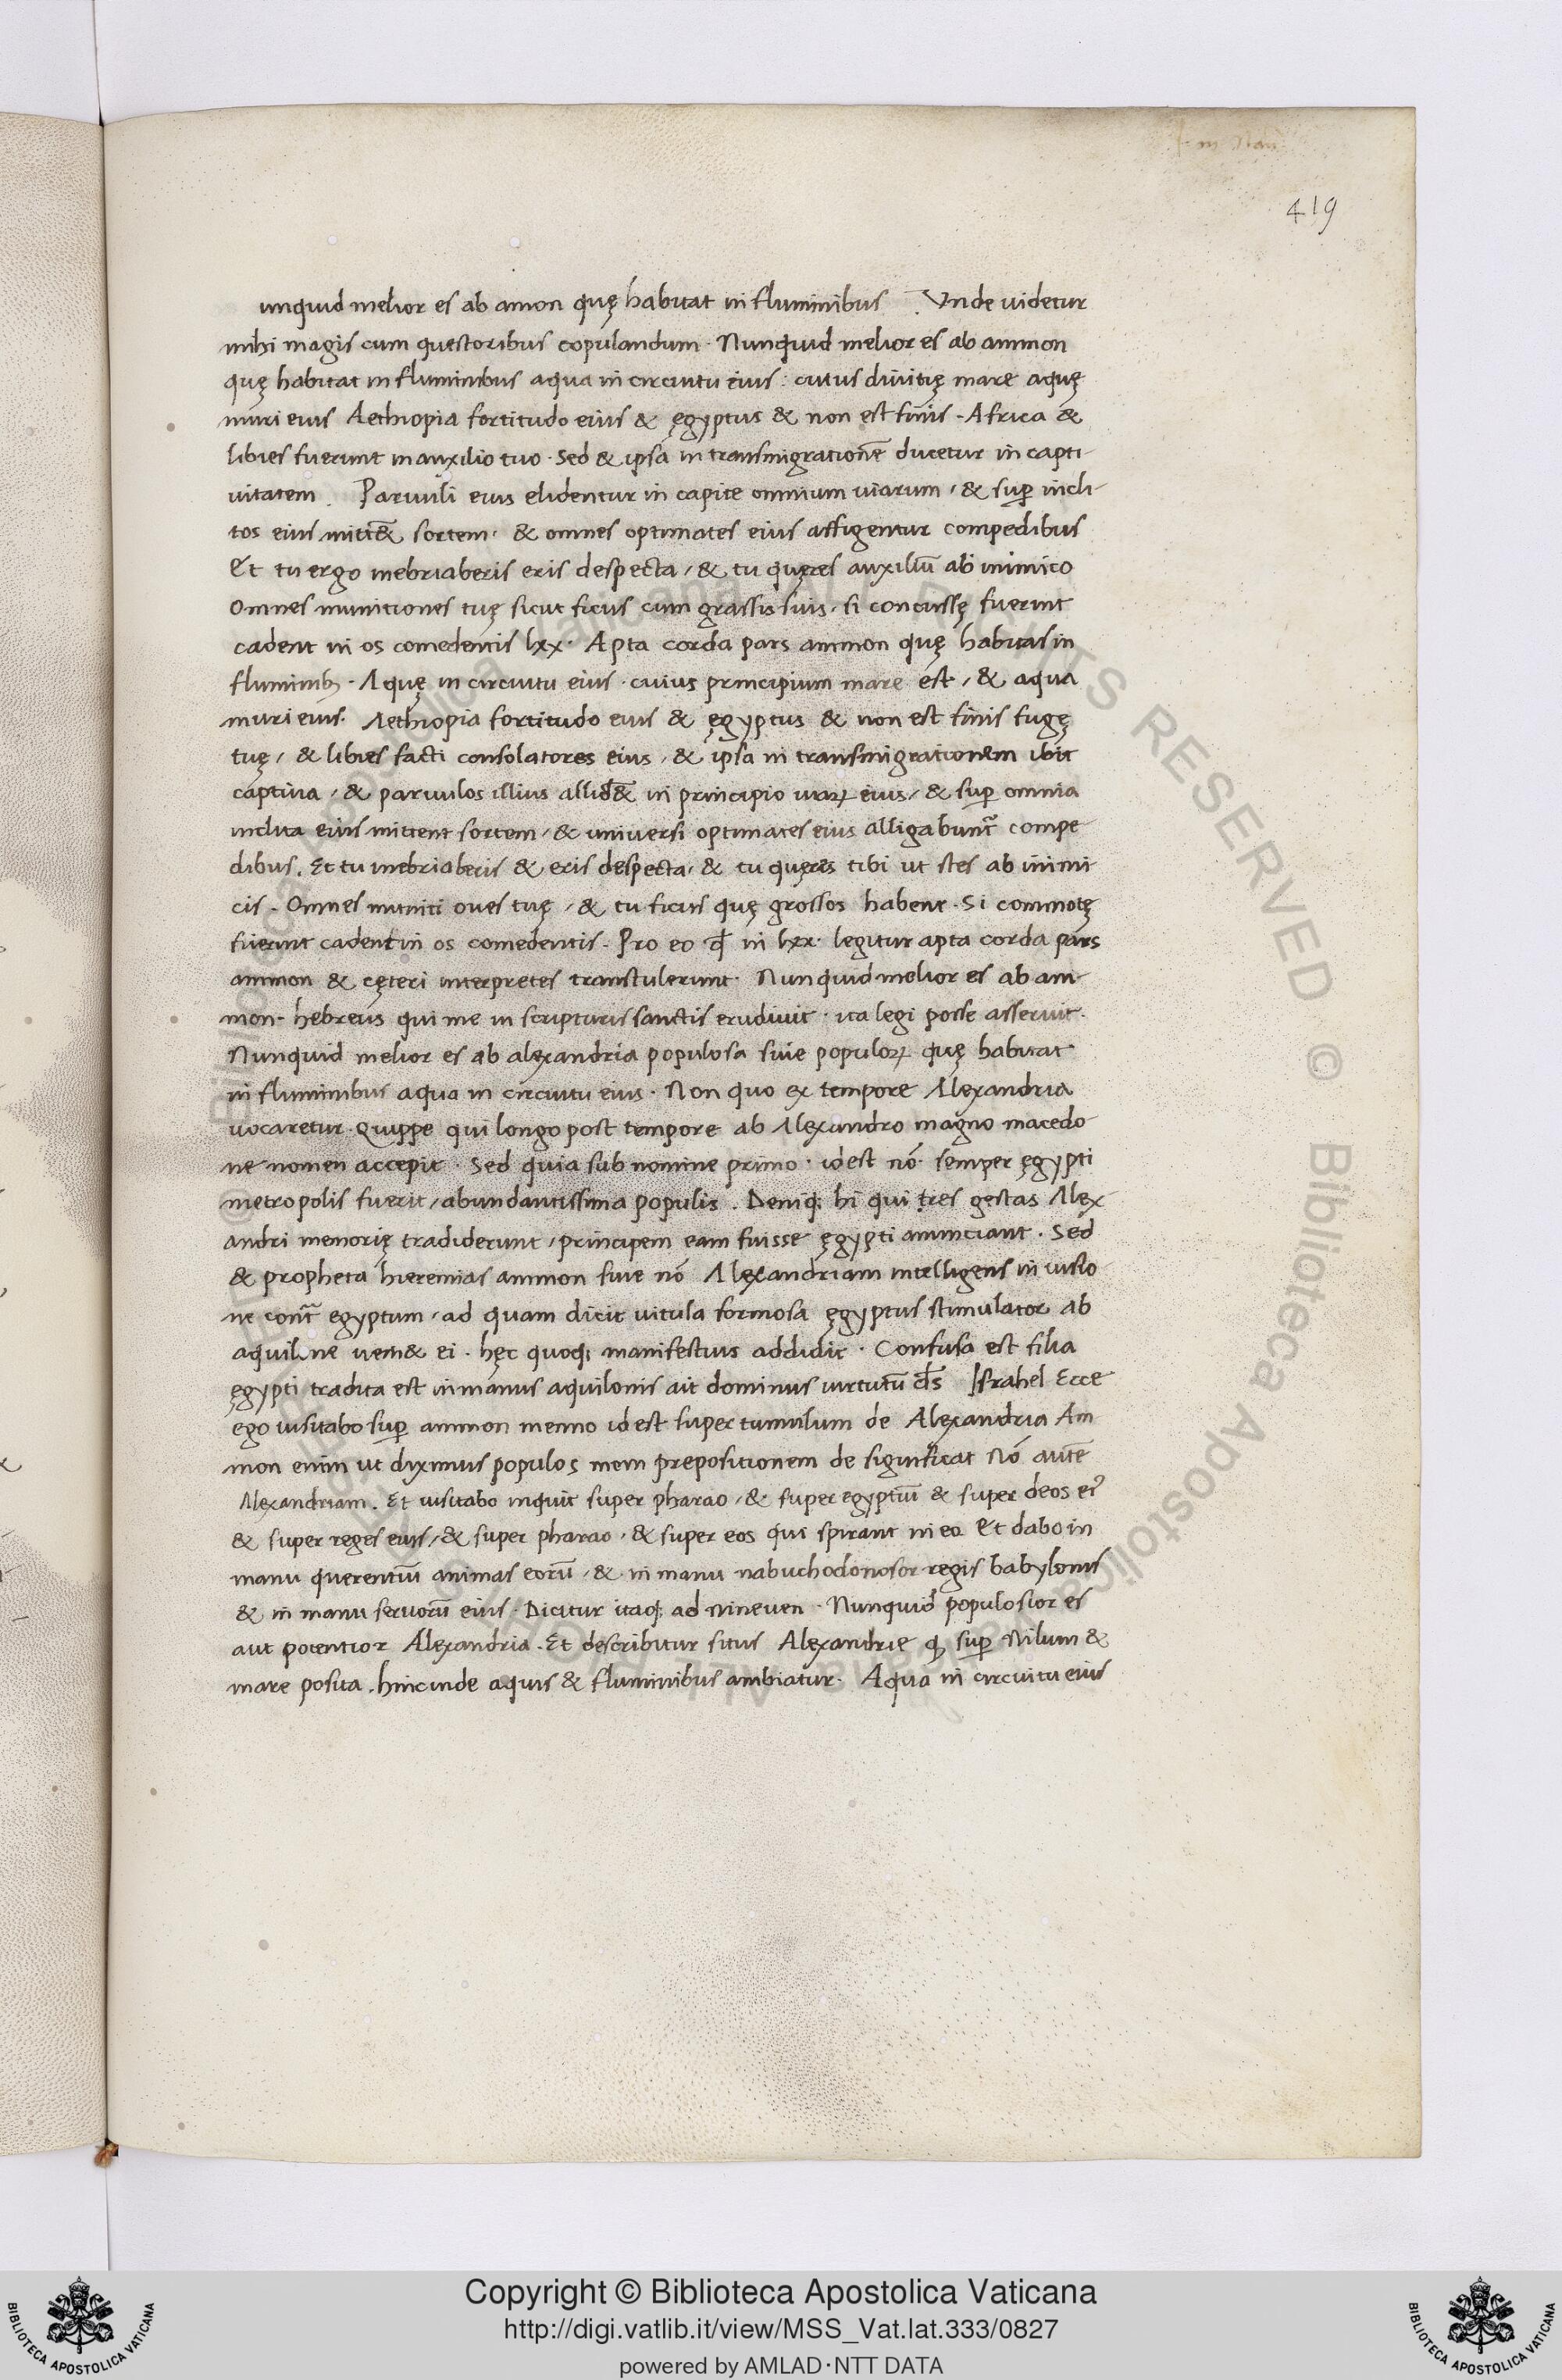 419
unquid melior es ab amon quę habitat in fluminibus . Vnde uidetur
mihi magis cum questoribus copulandum . Nunquid melior es ab ammon
quę habitat in fluminibus aqua in circuitu eius : cuius diuitię mare aquę
muri eius Aethiopia fortitudo eius & ęgyptus & non est finis . Africa &
libies fuerunt in auxilio tuo . Sed & ipsa in transmigrationē ducetur in capti-
uitatem . Paruuli eius elidentur in capite omnium uiarum , & suꝑ incli-
tos eius mitt&̄ sortem . & omnes optimates eius affigentur compedibus
Et tu ergo inebriaberis eris despecta , & tu quęres auxiliū ab inimico
Omnes munitiones tuę sicut ficus cum grassis suis , si concussę fuerint
cadent in os comedentis lxx . Apta corda pars ammon quę habitas in
fluminib; . Aquę in circuitu eius . cuius principium mare est , & aqua
muri eius . Aethiopia fortitudo eius & ęgyptus & non est finis fugę
tuę , & libies facti consolatores eius , & ipsa in transmigrationem ibit
captiua , & paruulos illius allid&̄ in principio uiaꝝ eius , & suꝑ omnia
inclita eius mittent sortem , & uniuersi optimates eius alligabunt᷑ compe
dibus . Et tu inebriaberis & eris despecta , & tu quęres tibi ut stes ab inimi-
cis . Omnes muniti oues tuę , & tu ficus quę grossos habent . Si commotę
fuerint cadent in os comedentis . Pro eo qđ in lxx . legitur apta corda pars
ammon & cęteri interpretes transtulerunt . Nunquid melior es ab am-
mon . hebreus qui me in scripturis sanctis erudiuit . ita legi posse asseruit .
Nunquid melior es ab alexandria populosa siue populoꝝ quę habitat
in fluminibus aqua in circuitu eius . Non quo ex tempore Alexandria
uocaretur . Quippe qui longo post tempore ab Alexandro magno macedo-
ne nomen accepit . Sed quia sub nomine primo . idest nō . semper ęgypti
metropolis fuerit , abundantissima populis . Deniq; hi qui tres gestas Alex
andri memorię tradiderunt , principem eam fuisse ęgypti anunciant . Sed
& propheta hieremias ammon siue nō Alexandriam intelligens in uisio
ne cont᷑ egyptum , ad quam dicit uitula formosa ęgyptus stimulator ab
aquilone ueni& ei . hęc quoq; manifestius addidit . Confusa est filia
ęgypti tradita est in manus aquilonis ait dominus uirtutū ds̄ Israhel Ecce
ego uisitabo suꝑ ammon menno idest super tumulum de Alexandria Am
mon enim ut diximus populos mem prepositionem de significat Nō autē
Alexandriam . Et uisitabo inquit super pharao , & super egyptū & super deos ei᷒
& super reges eius , & super pharao , & super eos qui spirant in eo Et dabo in
manu querentiū animas eorū , & in manu nabuchodonosor regis babylonis
& in manu seruorū eius . Dicitur itaq; ad nineuen . Nunquid populosior es
aut potentior Alexandria . Et describitur situs Alexandrie ꝙ suꝑ Nilum &
mare posita . hincinde aquis & fluminibus ambiatur . Aqua in circuitu eius
Copyright © Biblioteca Apostolica Vaticana
http://digi.vatlib.it/view/MSS_Vat.lat.333/0827
powered by AMLAD·NTT DATA